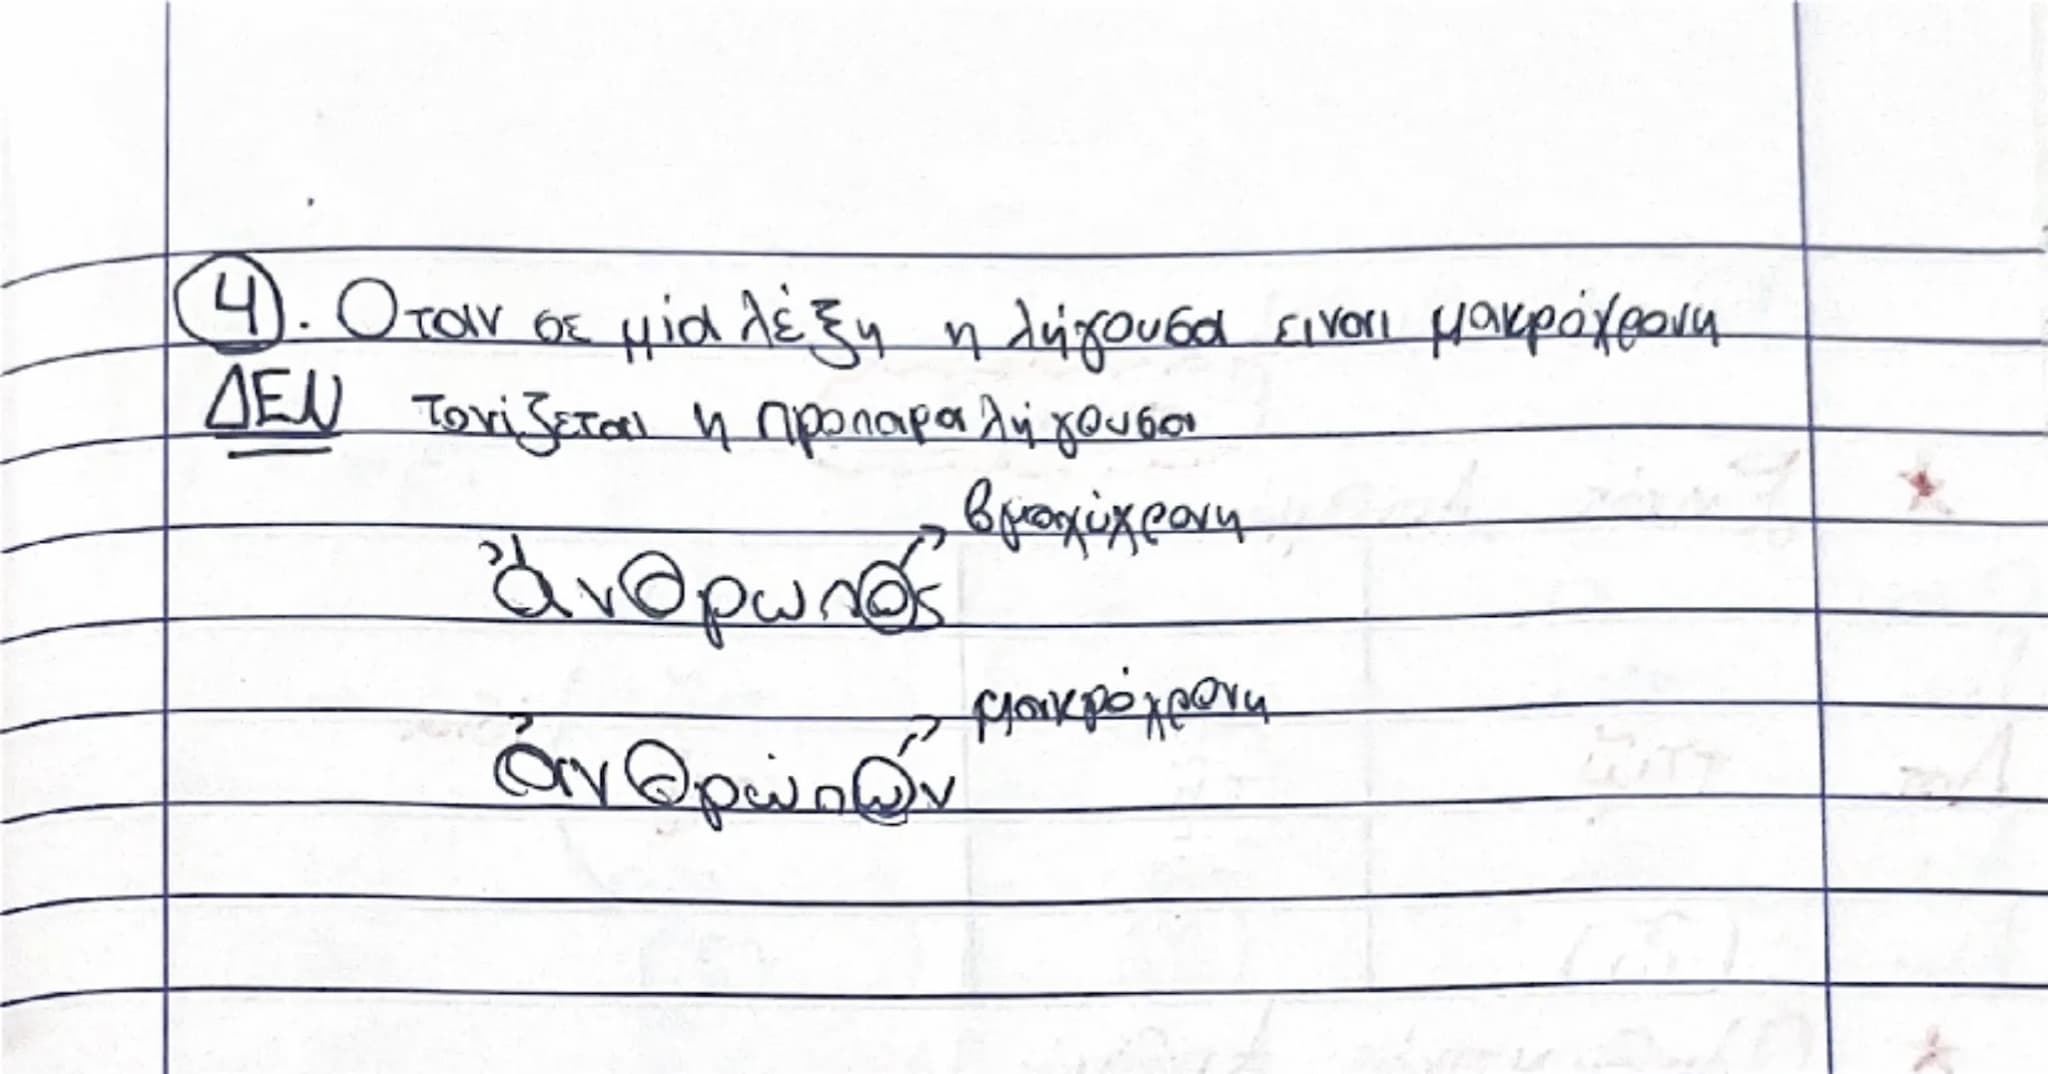 4. Οταν σε μία λέξη η λήγουσα ειναι μακρόχρονη
ΔΕΝ τονίζεται η προπαραλήγουσα
βραχύχρονη
ἄνθρωπος
μακρόχρονη
ἀνθρώπων